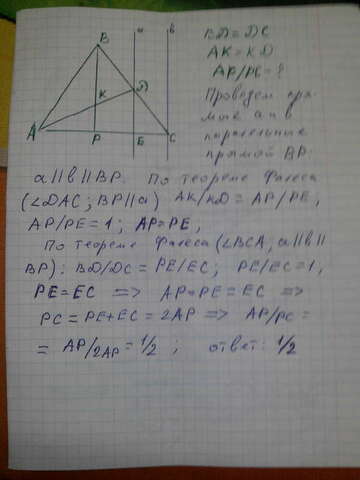 a
b
B
K
D
A
P
E
C
BD = DC
AK = KD
AP/PC = ?
Проведем пря-
мые a и b
паралельные
прямой BP.
a || b || BP. По теореме Фалеса
(∠DAC; BP || a) AK/KD = AP/PE,
AP/PE = 1; AP = PE,
По теореме Фалеса (∠BCA, a || b ||
BP): BD/DC = PE/EC; PE/EC = 1,
PE = EC => AP = PE = EC =>
PC = PE + EC = 2AP => AP/PC =
= AP/2AP = 1/2 ; ответ: 1/2